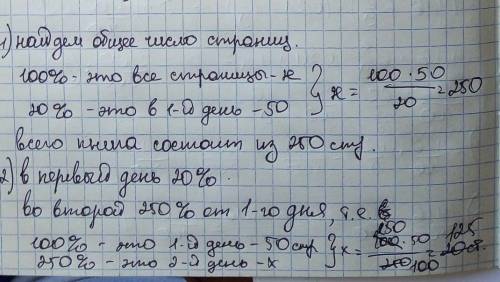 1) найдем общее число страниц.
100% - это все страницы - x } x = 100 · 50 / 20 = 250
20% - это в 1-й день - 50
всего книга состоит из 250 стр.
2) в первый день 20%.
во второй 250% от 1-го дня, т.е.
100% - это 1-й день - 50 стр } x = 250 · 50 / 100 = 125
250% - это 2-й день - x